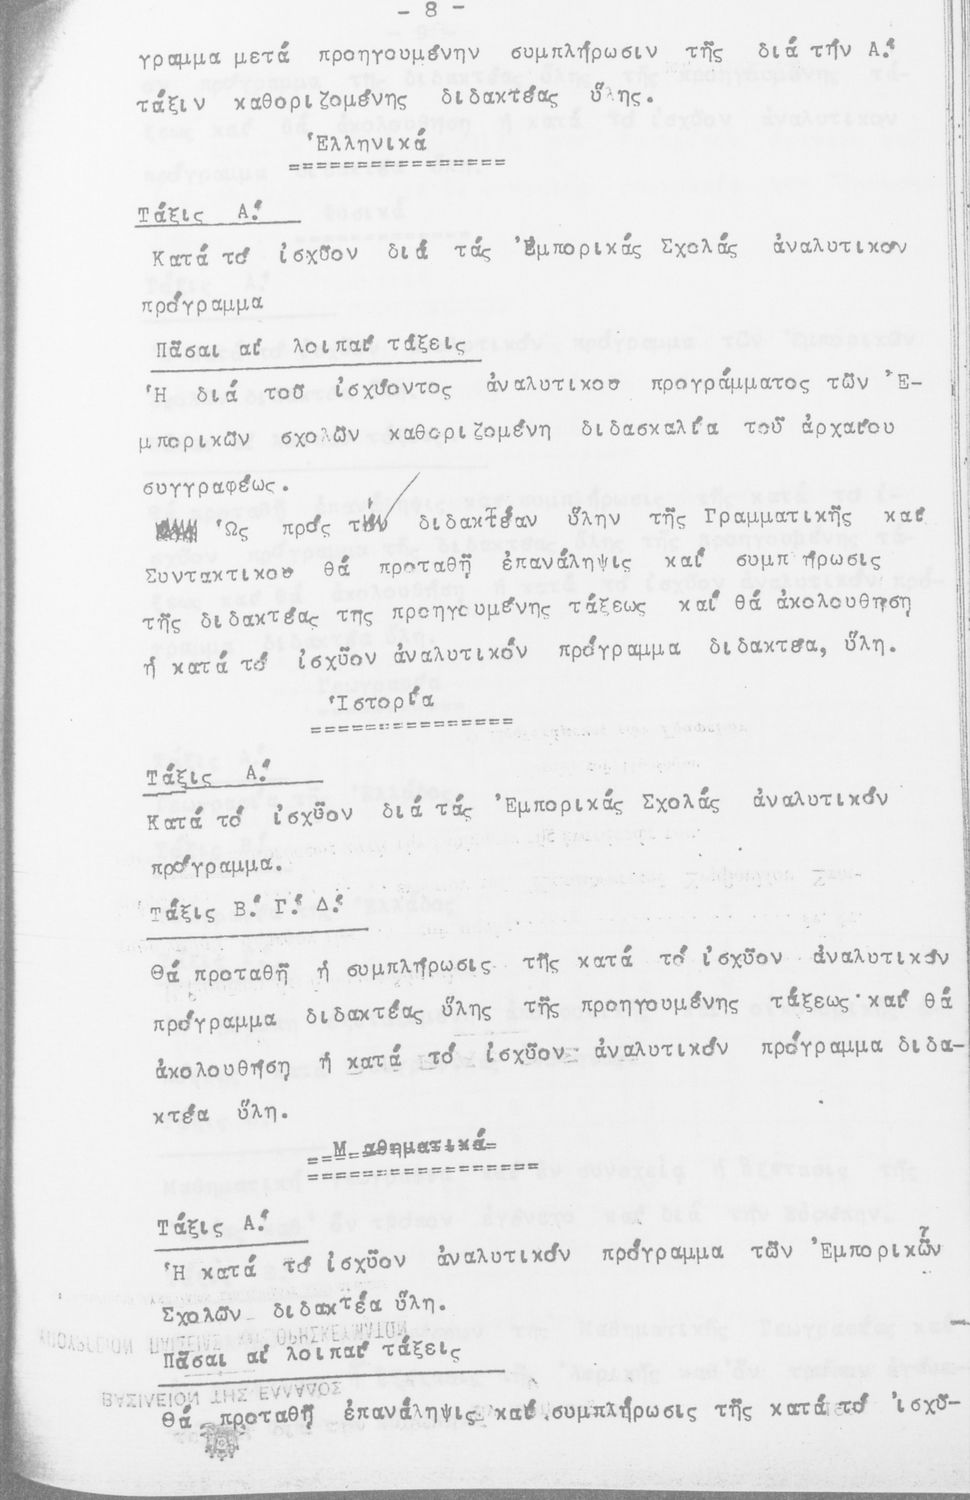 - 8 -
γραμμα μετά προηγουμένην συμπλήρωσιν τῆς διά τήν Α.'
τάξιν καθοριζομένης διδακτέας ὕλης.
Ἑλληνικά
Τάξις Α.'
Κατά τό ἰσχῦον διά τάς Ἐμπορικάς Σχολάς ἀναλυτικόν
πρόγραμμα
Πᾶσαι αἱ λοιπαί τάξεις
Ἡ διά τοῦ ἰσχύοντος ἀναλυτικοῦ προγράμματος τῶν Ἐ-
μπορικῶν σχολῶν καθοριζομένη διδασκαλία τοῦ ἀρχαίου
συγγραφέως.
Ὡς πρός τήν διδακτέαν ὕλην τῆς Γραμματικῆς καί
Συντακτικοῦ θά προταθῇ ἐπανάληψις καί συμπ ήρωσις
τῆς διδακτέας της προηγουμένης τάξεως καί θά ἀκολουθήση
ἡ κατά τό ἰσχῦον ἀναλυτικόν πρόγραμμα διδακτέα, ὕλη.
Ἱστορία
Τάξις Α.'
Κατά τό ἰσχῦον διά τάς Ἐμπορικάς Σχολάς ἀναλυτικόν
πρόγραμμα.
Τάξις Β.' Γ.' Δ.'
Θά προταθῇ ἡ συμπλήρωσις τῆς κατά τό ἰσχῦον ἀναλυτικόν
πρόγραμμα διδακτέας ὕλης τῆς προηγουμένης τάξεως καί θά
ἀκολουθήση ἡ κατά τό ἰσχῦον ἀναλυτικόν πρόγραμμα διδα-
κτέα ὕλη.
Μαθηματικά
Τάξις Α.'
Ἡ κατά τό ἰσχῦον ἀναλυτικόν πρόγραμμα τῶν Ἐμπορικῶν
Σχολῶν διδακτέα ὕλη.
Πᾶσαι αἱ λοιπαί τάξεις
Θά προταθῇ ἐπανάληψις καί συμπλήρωσις τῆς κατά τό ἰσχῦ-